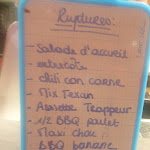 Ruptures:
- Salade d'accueil
- entrecôte
- chili con carne
- Mix Texan
- Assiette Trappeur
- 1/2 BBQ poulet
- Maxi choc
- BBQ banane